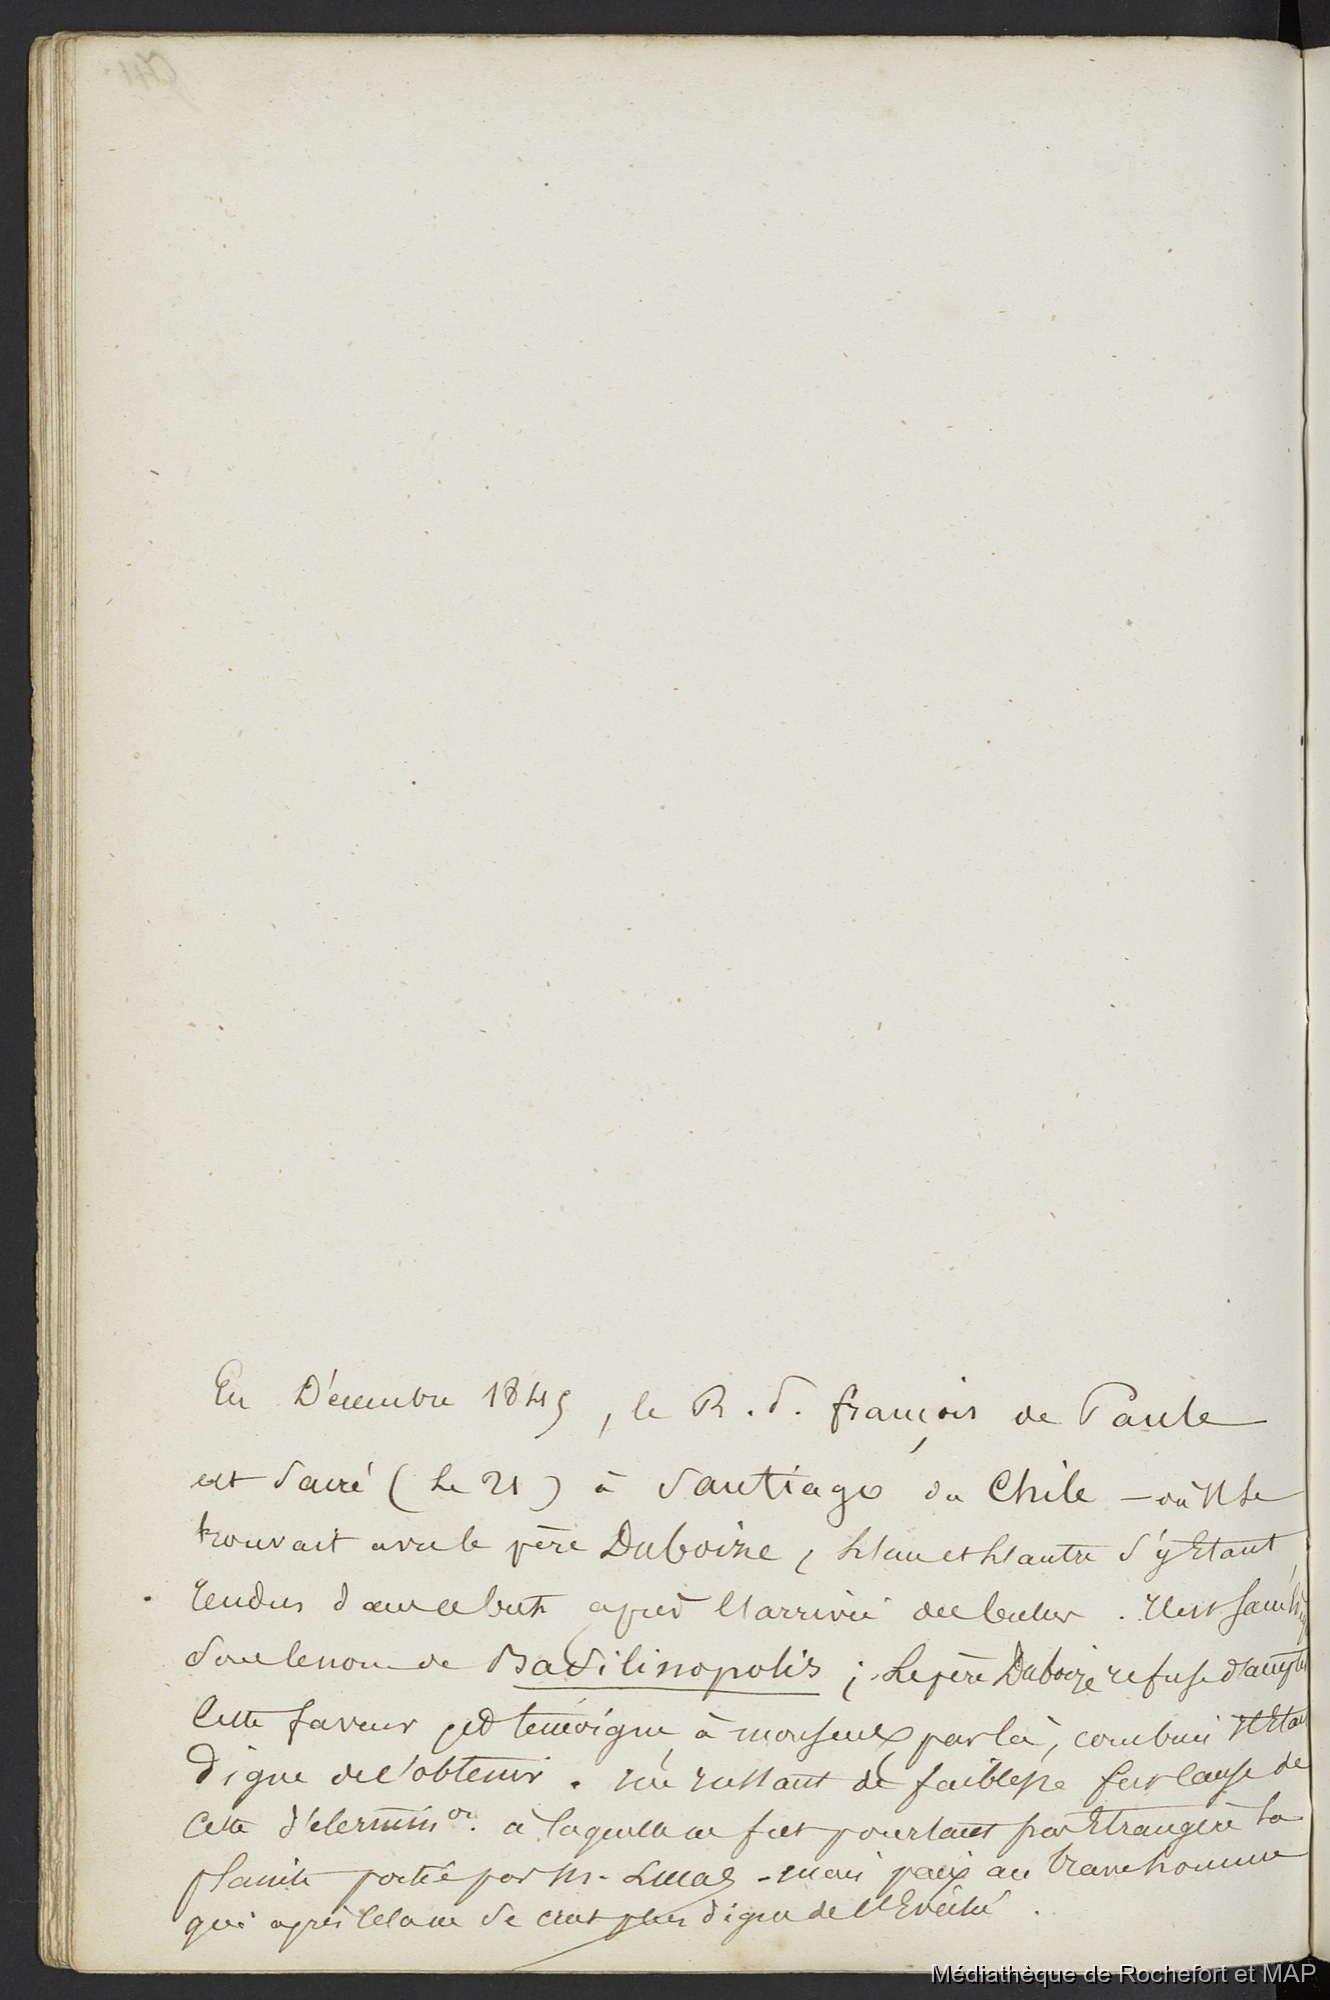 En Décembre 1845, le R. d. françois de Paule
est Sacré (le 21) à Santiago du Chile – où Il se
trouvait avec le père Duboize, L'un et L'autre s'y Etant
rendus dans ce but après L'arrivée des bulles. Il est
Sous le nom de Basilinopolis ; Le père Duboize refuse d'accepter
Cette faveur et témoigne à par là, combien Il Etait
Digne de l'obtenir. Un Instant de faiblesse fut Cause de
Cette détermin.on à laquelle ne fut pourtant pas Etrangère la
plainte portée par Mr. Lucas – mais paix au brave homme
qui après Cela ne Se crut plus digne de L'Evéché.
Médiathèque de Rochefort et MAP